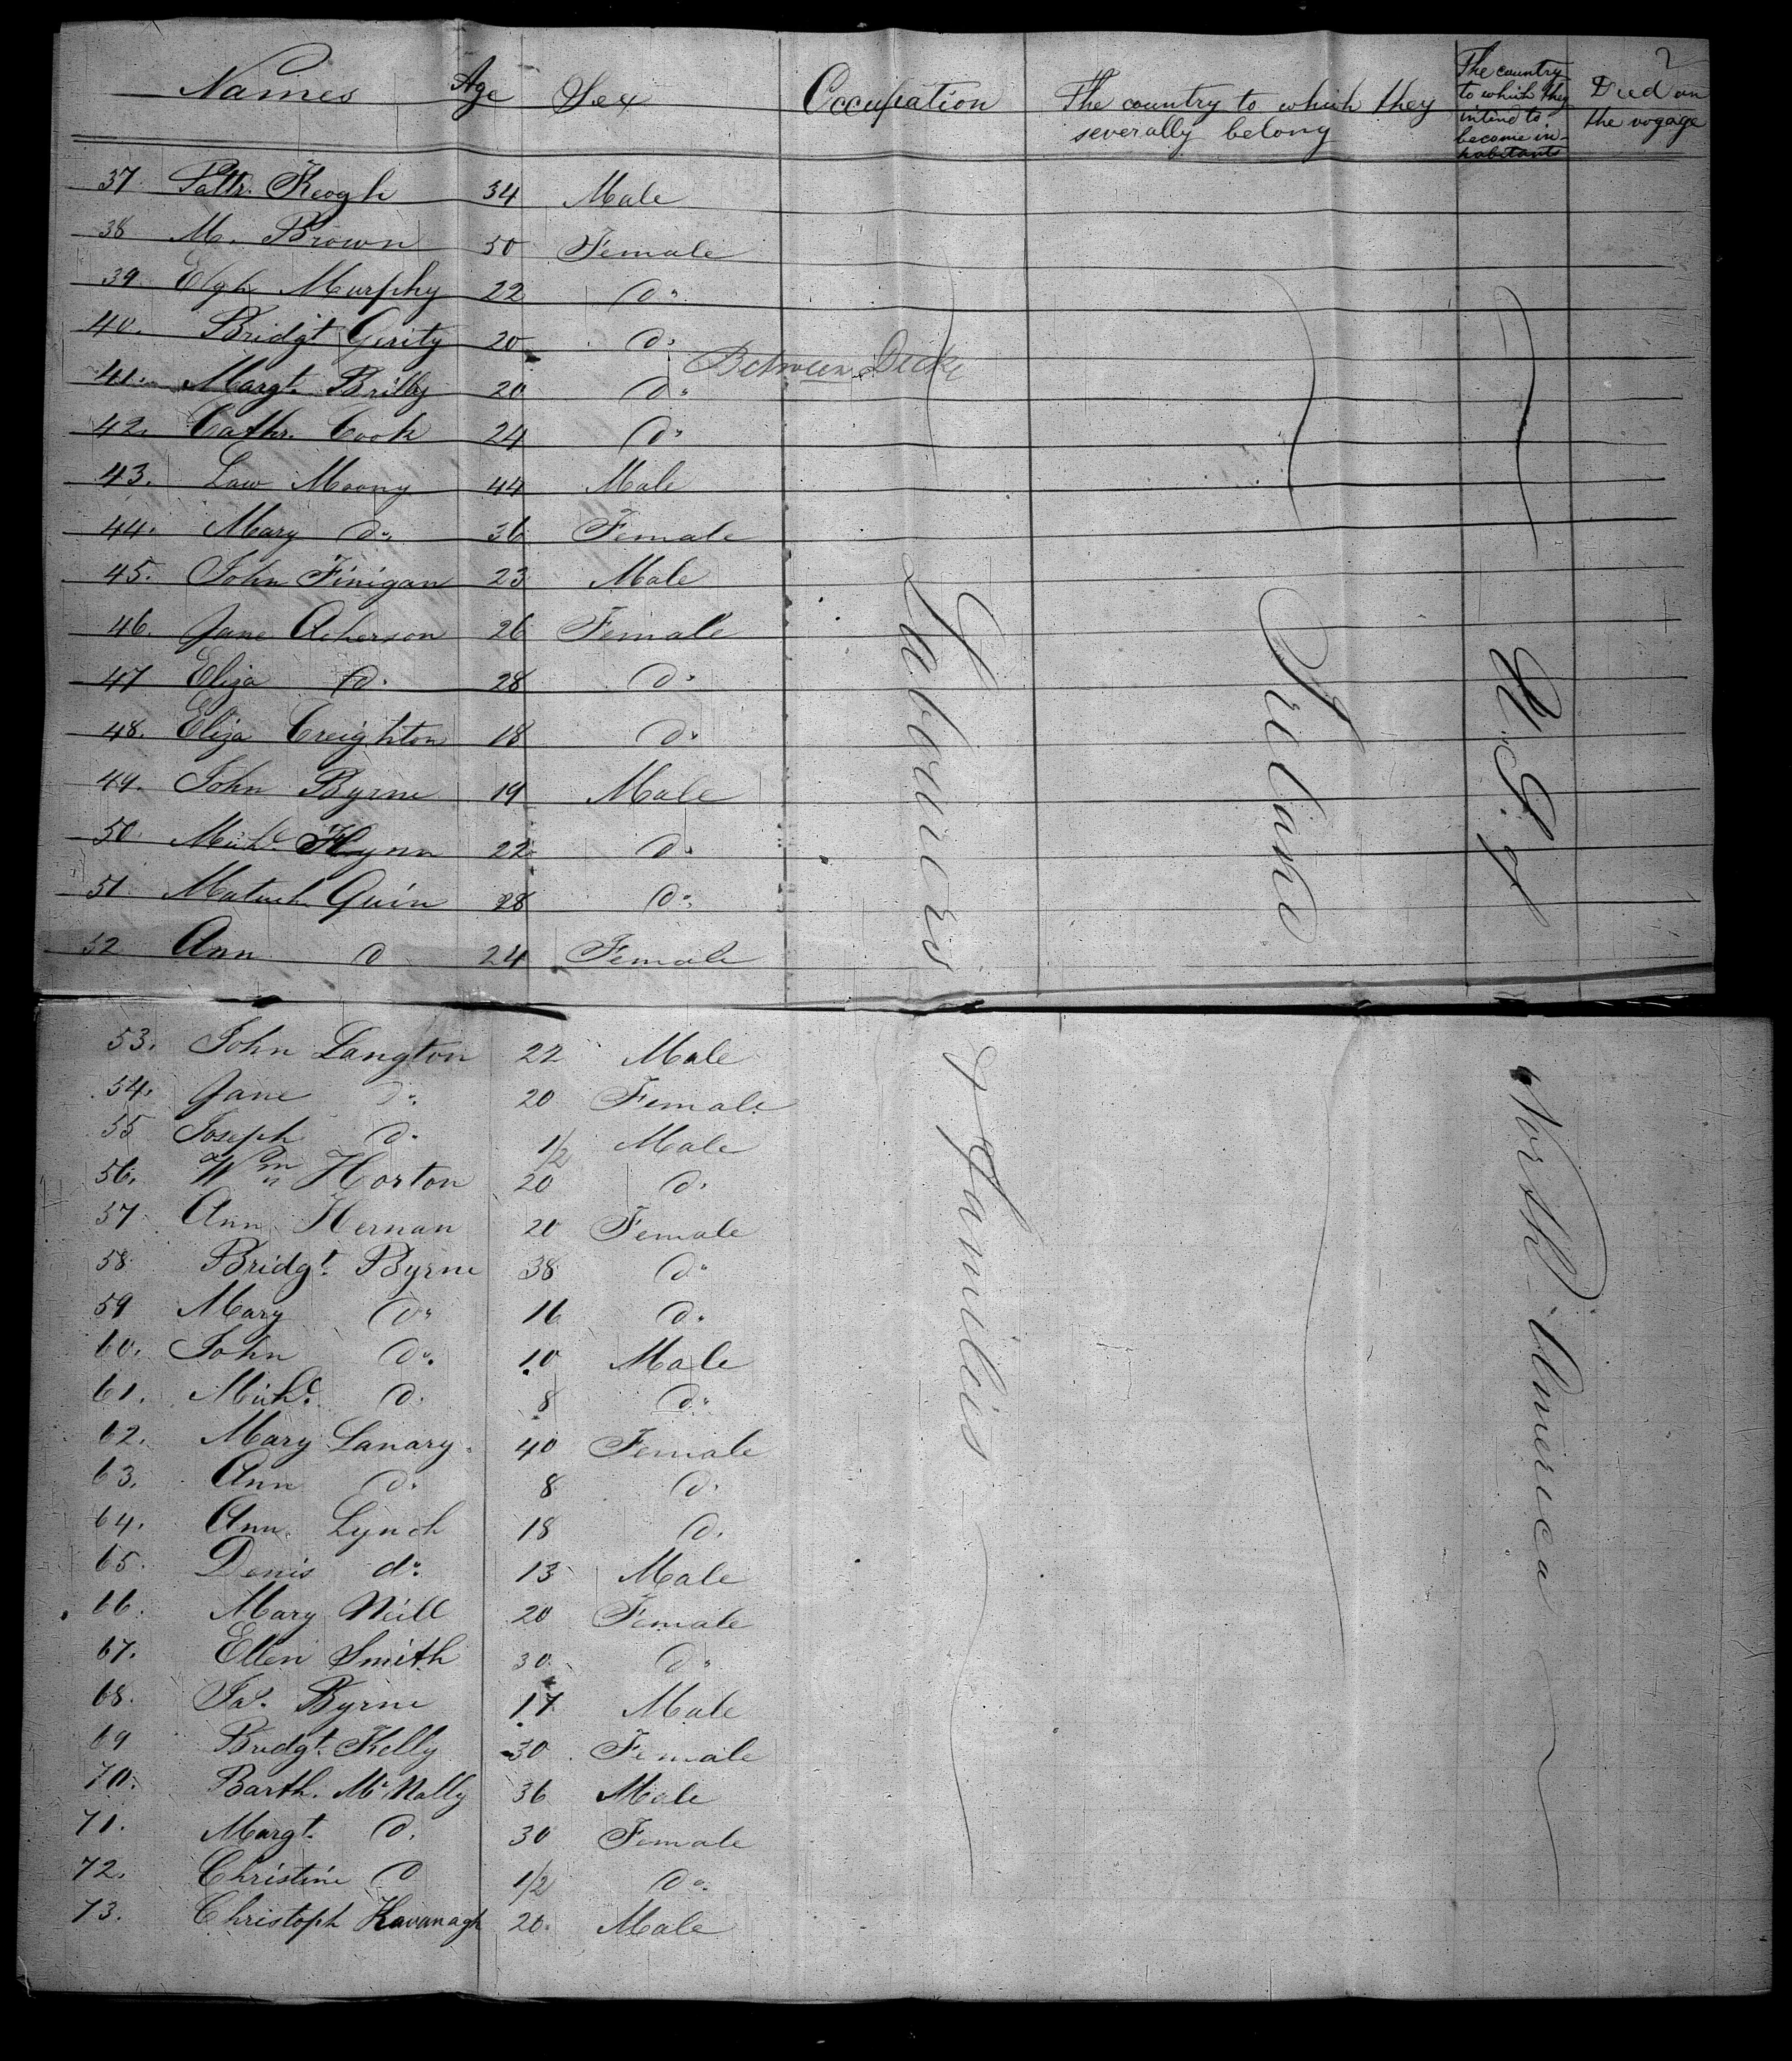 2
Names Age Sex Occupation The country to which they severally belong The country to which they intend to become inhabitants Died on the voyage
37. Pattr. Keogh 34 Male
38 M. Brown 50 Female
39. Elgh Murphy 22 do.
40. Bridgt Gerity 20 do.
Between Decks
41. Margt. Brilly 20 do.
42. Cathr. Cook 24 do.
43. Law Moony 44 Male
44. Mary do. 36 Female
45. John Finigan 23 Male
46. Jane Acherson 26 Female
47 Eliza do. 28 do.
48. Eliza Creighton 18 do.
49. John Byrne 19 Male
50. Michl. Flynn 22 do.
51. Quin 28 do.
52 Ann do 24 Female
53. John Langton 22 Male
54. Jane do. 20 Female
55 Joseph do. 1/2 Male
56. Wm Horton 20 do.
57 Ann Hernan 20 Female
58. Bridgt. Byrne 38 do.
59 Mary do. 16 do.
60. John do. 10 Male
61. Michl. do. 8 do.
62. Mary Lanary. 40 Female
63. Ann do. 8 do.
64. Ann Lynch 18 do.
65. Denis do. 13 Male
66. Mary Neill 20 Female
67. Ellen Smith 30. do.
68. Jas. Byrne 17 Male
69 Bridgt. Kelly 30 Female
70. Barth. McNally 36 Male
71. Margt. do. 30 Female
72. Christine do 1/2 do.
73. Christoph Kavanagh 20. Male
Labourers & Families
Ireland
U. S. of North America